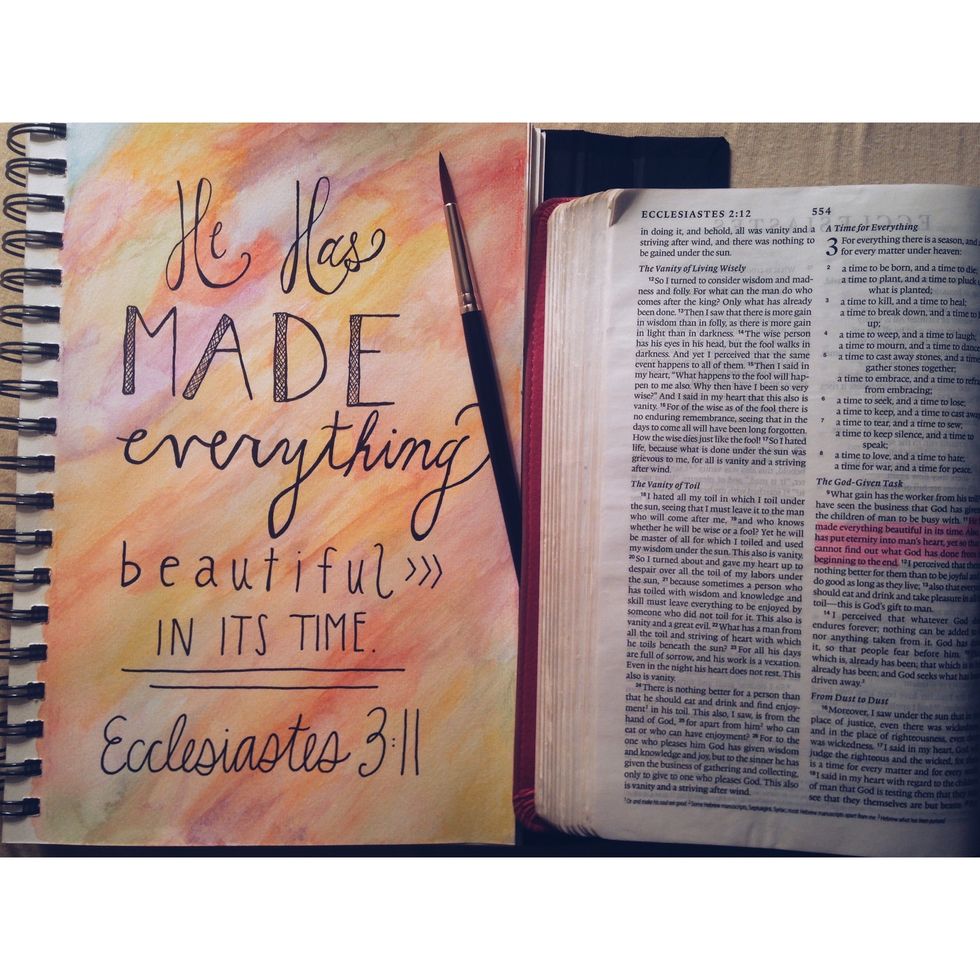 He Has
MADE
everything
beautiful >>>
IN ITS TIME.
Ecclesiastes 3:11
ECCLESIASTES 2:12
554
in doing it, and behold, all was vanity and a
striving after wind, and there was nothing to
be gained under the sun.
The Vanity of Living Wisely
12So I turned to consider wisdom and mad-
ness and folly. For what can the man do who
comes after the king? Only what has already
been done. 13Then I saw that there is more gain
in wisdom than in folly, as there is more gain
in light than in darkness. 14The wise person
has his eyes in his head, but the fool walks in
darkness. And yet I perceived that the same
event happens to all of them. 15Then I said in
my heart, "What happens to the fool will hap-
pen to me also. Why then have I been so very
wise?" And I said in my heart that this also is
vanity. 16For of the wise as of the fool there is
no enduring remembrance, seeing that in the
days to come all will have been long forgotten.
How the wise dies just like the fool! 17So I hated
life, because what is done under the sun was
grievous to me, for all is vanity and a striving
after wind.
The Vanity of Toil
18I hated all my toil in which I toil under
the sun, seeing that I must leave it to the man
who will come after me, 19and who knows
whether he will be wise or a fool? Yet he will
be master of all for which I toiled and used
my wisdom under the sun. This also is vanity.
20So I turned about and gave my heart up to
despair over all the toil of my labors under
the sun, 21because sometimes a person who
has toiled with wisdom and knowledge and
skill must leave everything to be enjoyed by
someone who did not toil for it. This also is
vanity and a great evil. 22What has a man from
all the toil and striving of heart with which
he toils beneath the sun? 23For all his days
are full of sorrow, and his work is a vexation.
Even in the night his heart does not rest. This
also is vanity.
24There is nothing better for a person than
that he should eat and drink and find enjoy-
ment1 in his toil. This also, I saw, is from the
hand of God, 25for apart from him2 who can
eat or who can have enjoyment? 26For to the
one who pleases him God has given wisdom
and knowledge and joy, but to the sinner he has
given the business of gathering and collecting,
only to give to one who pleases God. This also
is vanity and a striving after wind.
A Time for Everything
3 For everything there is a season, and
for every matter under heaven:
2 a time to be born, and a time to die;
a time to plant, and a time to pluck
what is planted;
3 a time to kill, and a time to heal;
a time to break down, and a time
up;
4 a time to weep, and a time to laugh;
a time to mourn, and a time to dance
5 a time to cast away stones, and a time
gather stones together;
a time to embrace, and a time to
from embracing;
6 a time to seek, and a time to lose;
a time to keep, and a time to cast away
7 a time to tear, and a time to sew;
a time to keep silence, and a time to
speak;
8 a time to love, and a time to hate;
a time for war, and a time for peace.
The God-Given Task
9What gain has the worker from his
have seen the business that God has
the children of man to be busy with.
made everything beautiful in its time.
has put eternity into man's heart, yet so
cannot find out what God has done from
beginning to the end. 12I perceived that
nothing better for them than to be joyful
do good as long as they live; 13also that
should eat and drink and take pleasure in
toil—this is God's gift to man.
14I perceived that whatever God
endures forever; nothing can be added
nor anything taken from it. God has
it, so that people fear before him.
which is, already has been; that which is
already has been; and God seeks what has
driven away.3
From Dust to Dust
16Moreover, I saw under the sun that in
place of justice, even there was
and in the place of righteousness, even
was wickedness. 17I said in my heart, God
judge the righteous and the wicked, for
is a time for every matter and for every
18I said in my heart with regard to the
of man that God is testing them that they
see that they themselves are but